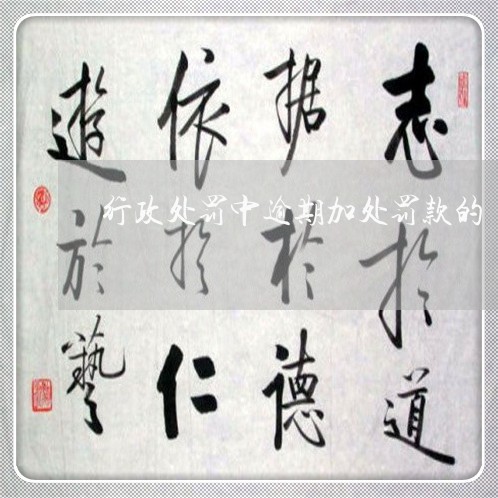 志於道
据於德
依於仁
遊於藝
行政处罚中逾期加处罚款的